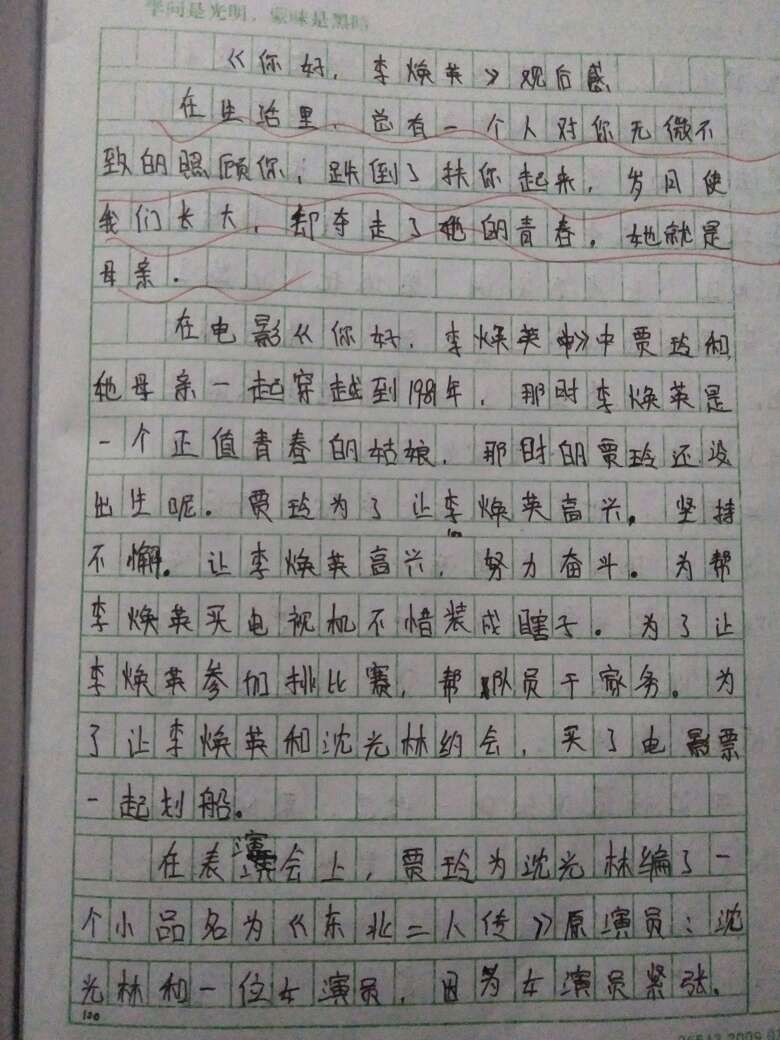 学问是光明，蒙昧是黑暗
《你好，李焕英》观后感
在生活里，总有一个人对你无微不
致的照顾你，跌倒了扶你起来，岁月使
我们长大，却夺走了她的青春。她就是
母亲．
在电影《你好．李焕英》中贾玲和
她母亲一起穿越到1981年，那时李焕英是
一个正值青春的姑娘，那时的贾玲还没
出生呢。贾玲为了让李焕英高兴。坚持
不懈。让李焕英高兴，努力奋斗。为帮
李焕英买电视机不惜装成瞎子。为了让
李焕英参加排比赛，帮队员干家务。为
了让李焕英和沈光林约会，买了电影票
一起划船。
在表演会上，贾玲为沈光林编了一
个小品名为《东北二人传》原演员：沈
光林和一位女演员，因为女演员紧张．
100